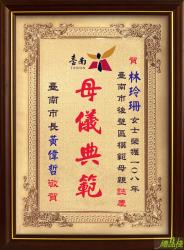 賀
臺南
TAINAN
林玲珊女士榮獲一〇八年
臺南市後壁區模範母親誌慶
母儀典範
臺南市長黃偉哲敬賀